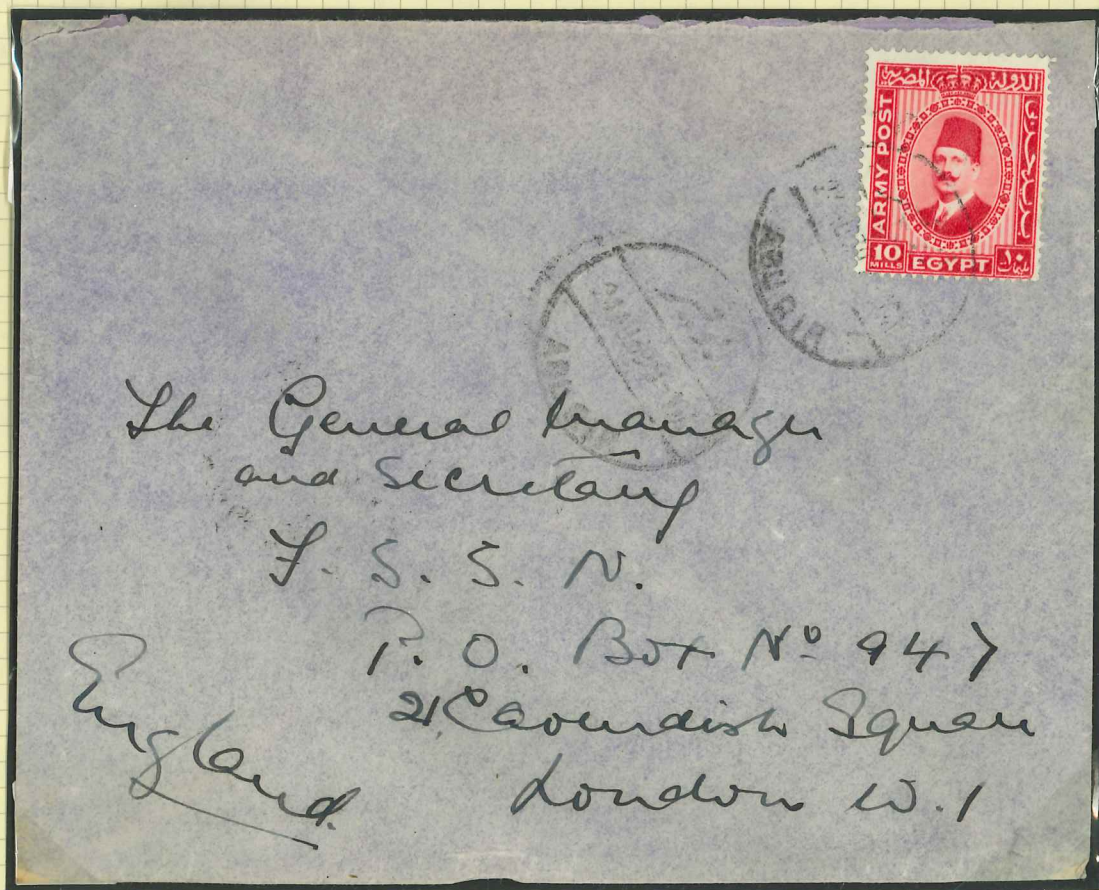 الدولة المصرية
ARMY POST
10
MILLS
EGYPT
ABUQIR
The General Manager
and Secretary
F. S. S. N.
P. O. Box Nº 947
21 Cavendish Square
London W. 1
England.